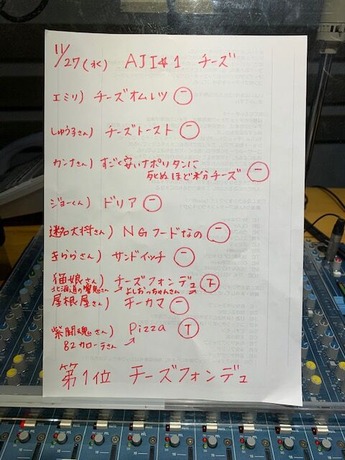 11/27(水) AJI#1 チーズ
エミリ) チーズオムレツ ㊀
しゅうすさん) チーズトースト ㊀
カンナさん) すごく安いナポリタンに
死ぬほど粉チーズ ㊀
ジョーくん) ドリア ㊀
NGフードなの ㊀
きららさん) サンドイッチ ㊀
猫娘さん) チーズフォンデュ Ⓣ
北海道の よしかっちゃんさん
屋根屋さん) チーカマ ㊀
紫開魂さん) Pizza Ⓣ
B2カローラさん
第1位 チーズフォンデュ